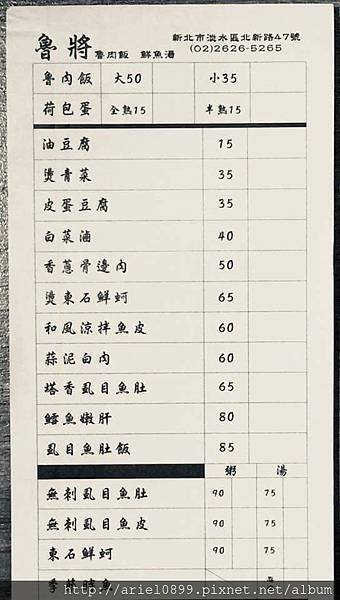 魯將 魯肉飯 鮮魚湯
新北市淡水區北新路47號
(02)2626-5265
魯肉飯 大50 小35
荷包蛋 全熟15 半熟15
油豆腐 15
燙青菜 35
皮蛋豆腐 35
白菜滷 40
香蔥骨邊肉 50
燙東石鮮蚵 65
和風涼拌魚皮 60
蒜泥白肉 60
塔香虱目魚肚 65
鱈魚嫩肝 80
虱目魚肚飯 85
粥 湯
無刺虱目魚肚 90 75
無刺虱目魚皮 90 75
東石鮮蚵 90 75
季節時魚
http://ariel0899.pixnet.net/album